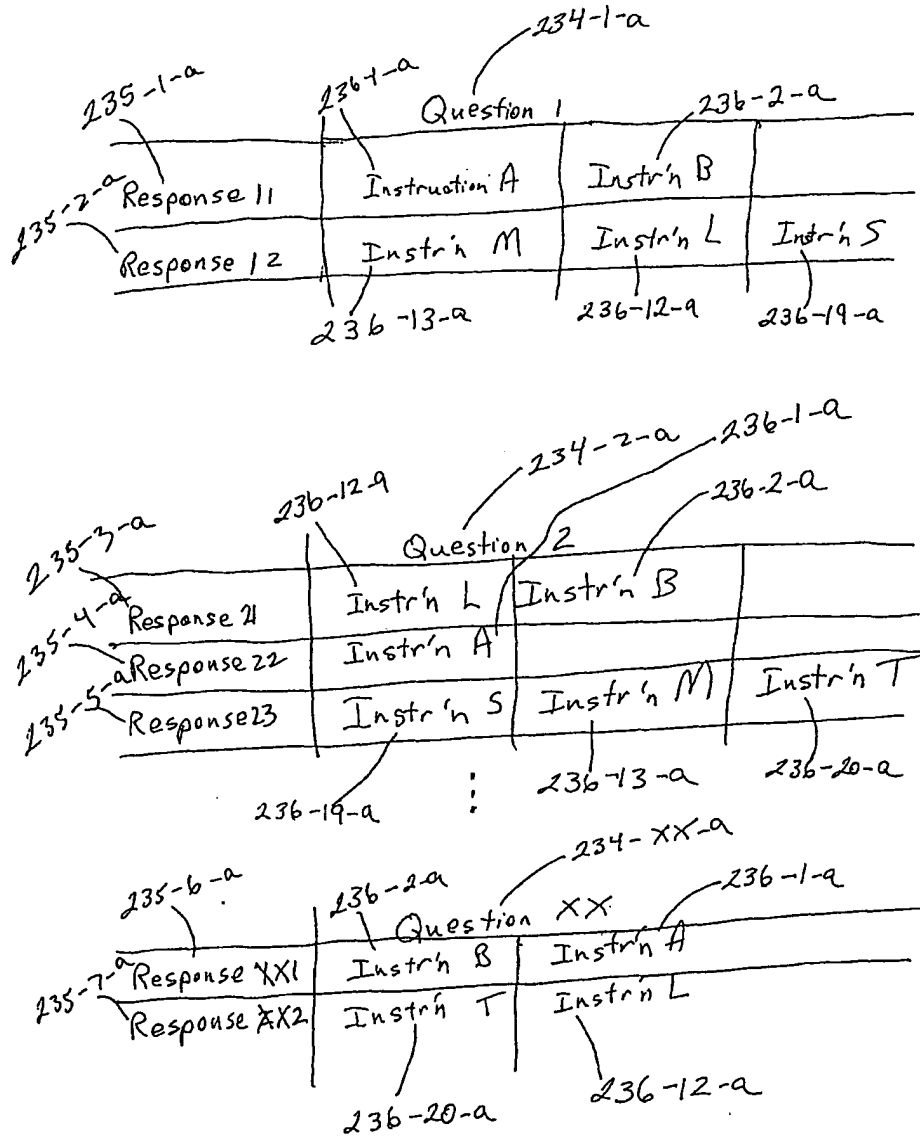 234-1-a
235-1-a 236-1-a
Question 1 236-2-a
235-2-a Response 11 Instruction A Instr'n B
Response 12 Instr'n M Instr'n L Instr'n S
236-13-a 236-12-a 236-19-a
236-12-a 234-2-a 236-1-a
235-3-a Question 2 236-2-a
Response 21 Instr'n L Instr'n B
235-4-a Response 22 Instr'n A
235-5-a Response 23 Instr'n S Instr'n M Instr'n T
236-19-a 236-13-a 236-20-a
234-XX-a
235-6-a 236-2-a 236-1-a
Question XX
Response XX1 Instr'n B Instr'n A
235-7-a Response XX2 Instr'n T Instr'n L
236-20-a 236-12-a